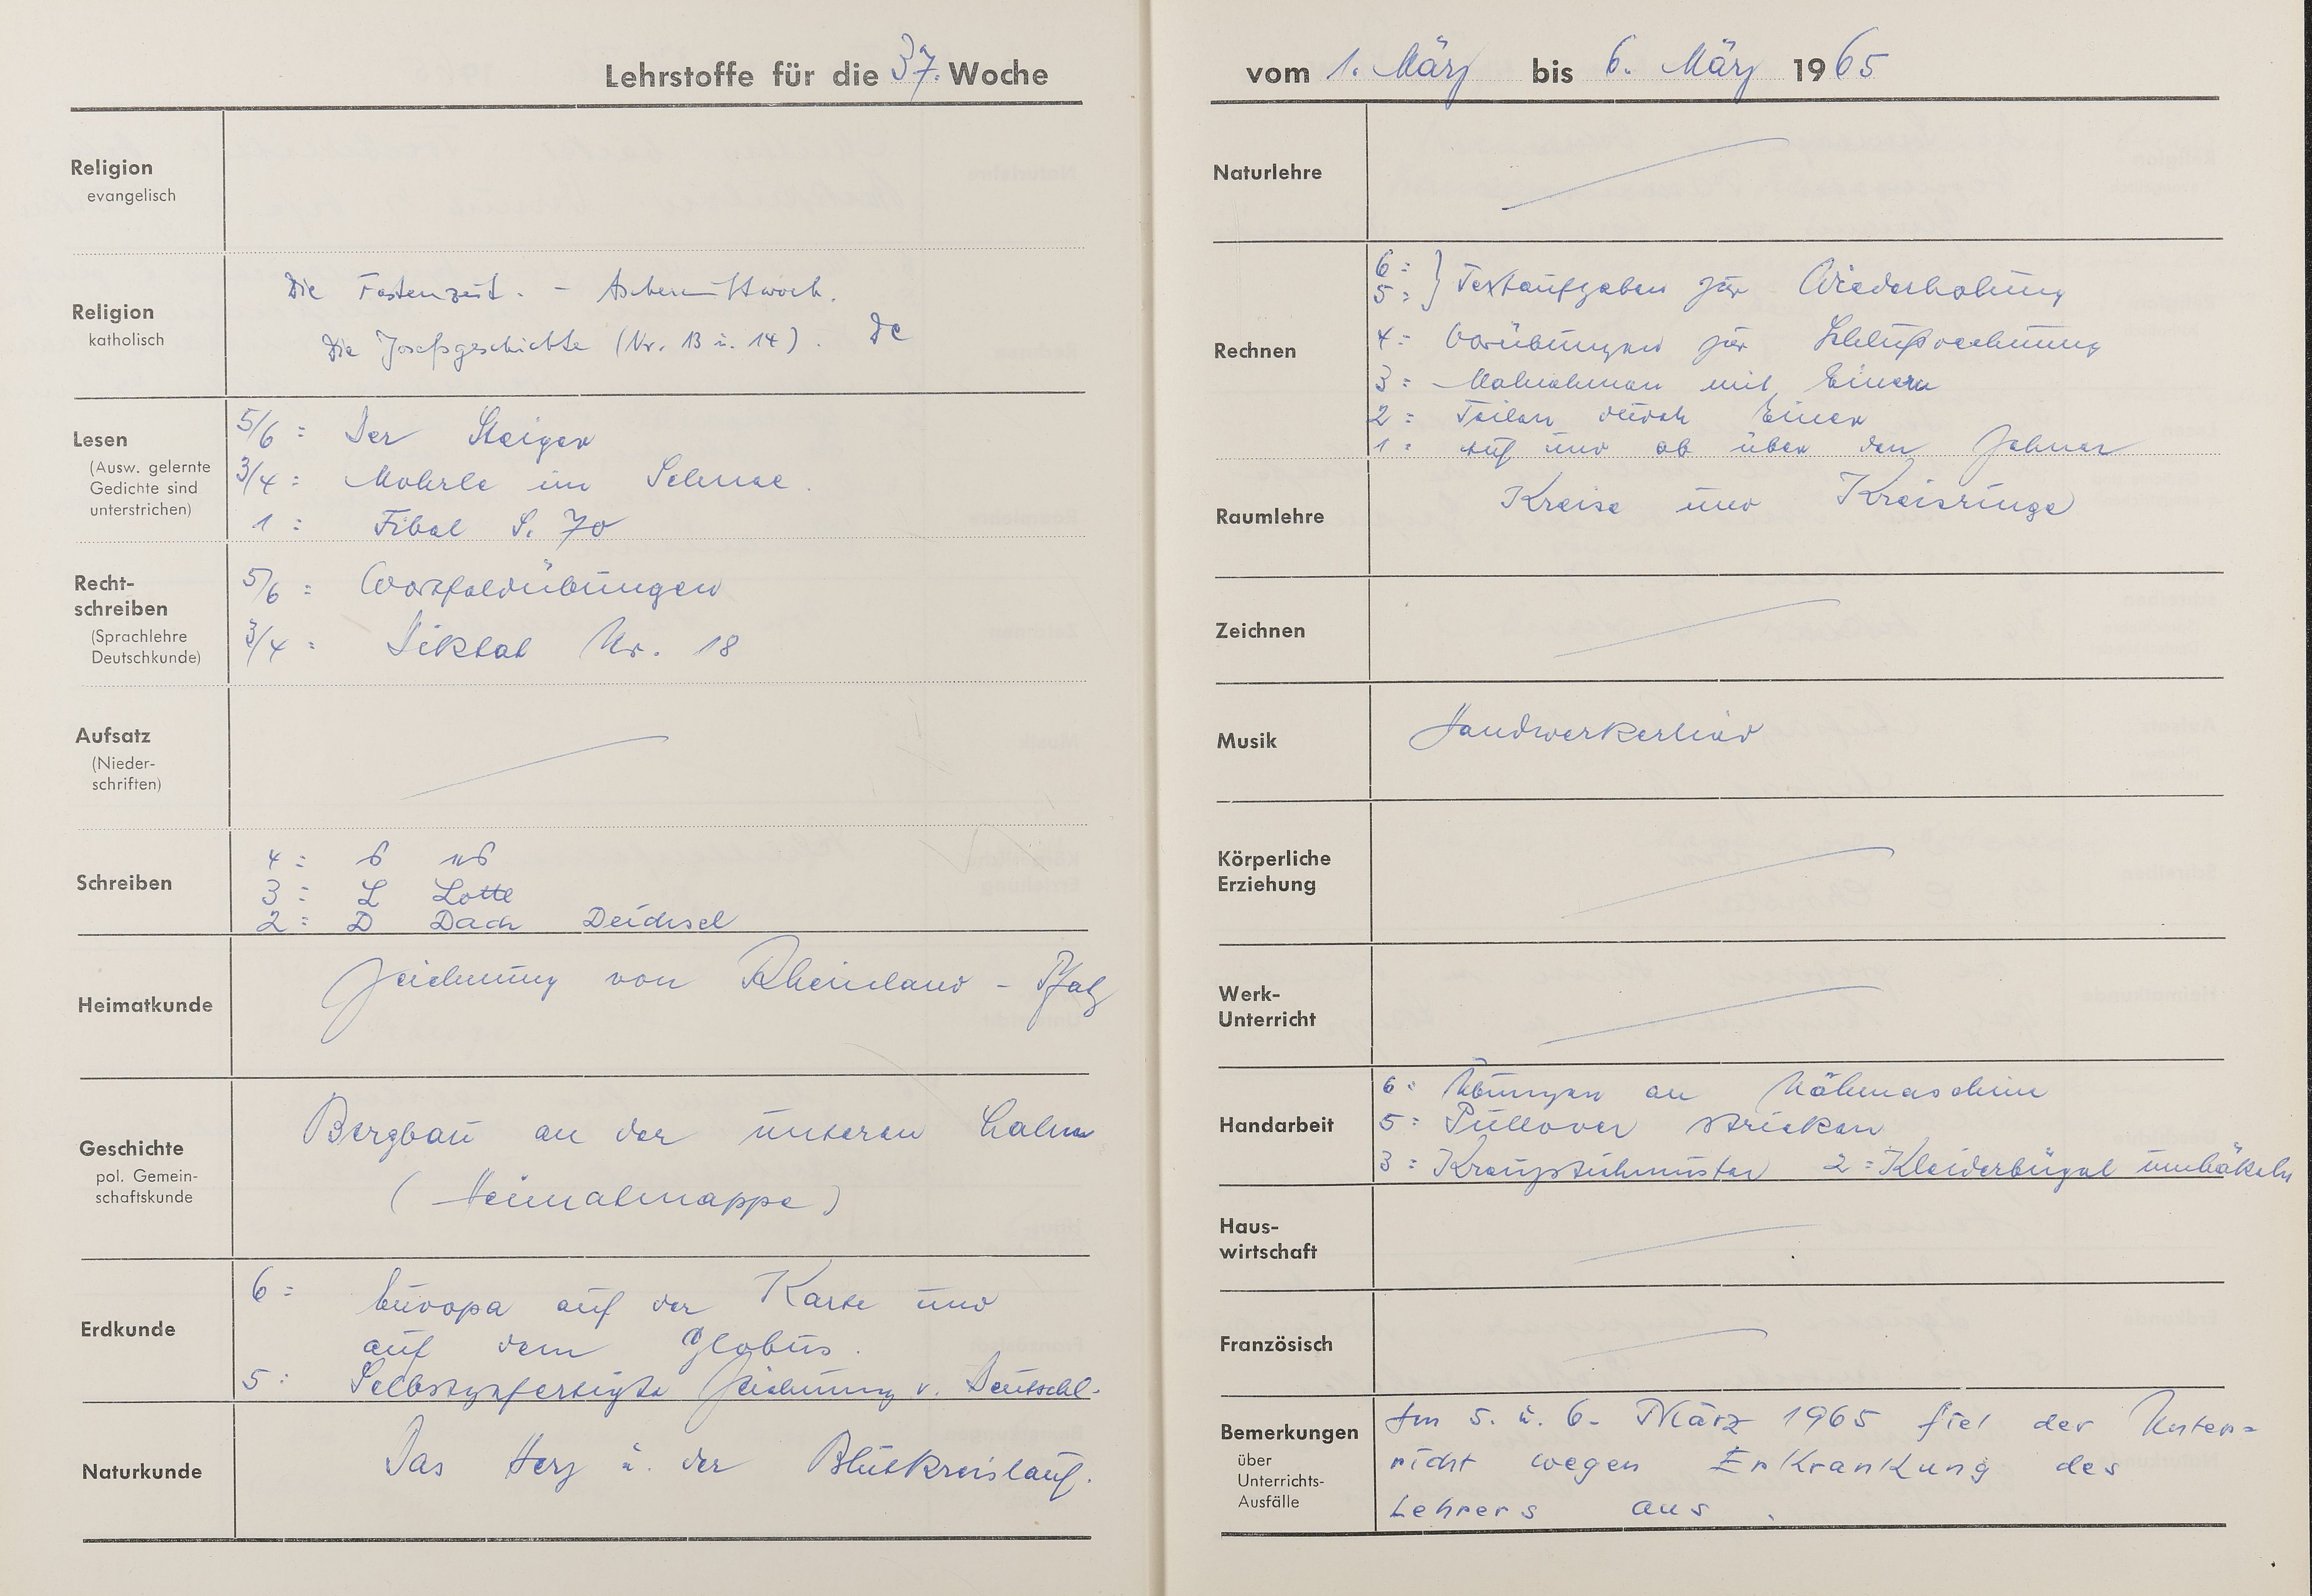 Lehrstoffe für die 37. Woche
Religion
evangelisch
Religion
katholisch
Die Fastenzeit. - Aschermittwoch.
Die Josefsgeschichte (Nr. 13 u. 14). De
Lesen
(Ausw. gelernte
Gedichte sind
unterstrichen)
5/6 : Der Steiger
3/4 : Mohrle im Schnee.
1 : Fibel S. 70
Recht-
schreiben
(Sprachlehre
Deutschkunde)
5/6 : Wortfeldübungen
3/4 : Diktat Nr. 18
Aufsatz
(Nieder-
schriften)
Schreiben
4 : ß
3 : L Lotte
2 : D Dach Deichsel
Heimatkunde
Zeichnung von Rheinland - Pfalz
Geschichte
pol. Gemein-
schaftskunde
Bergbau an der unteren Lahn
( Heimatmappe )
Erdkunde
6 : Europa auf der Karte und
auf dem Globus.
5 : Selbstgefertigte Zeichnung v. Deutschl.
Naturkunde
Das Herz u. der Blutkreislauf.
vom 1. März bis 6. März 1965
Naturlehre
Rechnen
6 : } Textaufgaben zur Wiederholung
5 :
4 : Vorübungen zur Schlußrechnung
3 : Malnehmen mit Einern
2 : Teilen durch Einer
1 : Auf und ab über den Zehner
Raumlehre
Kreise und Kreisringe
Zeichnen
Musik
Handwerkerlied
Körperliche
Erziehung
Werk-
Unterricht
Handarbeit
6 : Übungen an Nähmaschine
5 : Pullover stricken
3 : Kreuzstichmuster 2 : Kleiderbügel umhäkeln
Haus-
wirtschaft
Französisch
Bemerkungen
über
Unterrichts-
Ausfälle
Am 5. u. 6. März 1965 fiel der Unter=
richt wegen Erkrankung des
Lehrers aus.